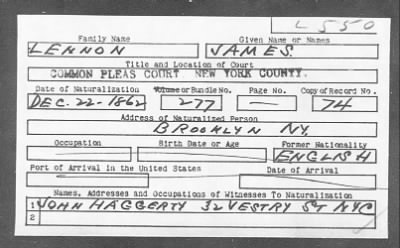 L 550
Family Name Given Name or Names
LENNON JAMES.
Title and Location of Court
COMMON PLEAS COURT NEW YORK COUNTY.
Date of Naturalization Volume or Bundle No. Page No. Copy of Record No.
DEC. 22-1862 277 — 74
Address of Naturalized Person
BROOKLYN NY.
Occupation Birth Date or Age Former Nationality
ENGLISH
Port of Arrival in the United States Date of Arrival
Names, Addresses and Occupations of Witnesses To Naturalization
1 JOHN HAGGERTY 32 VESTRY ST NYC
2